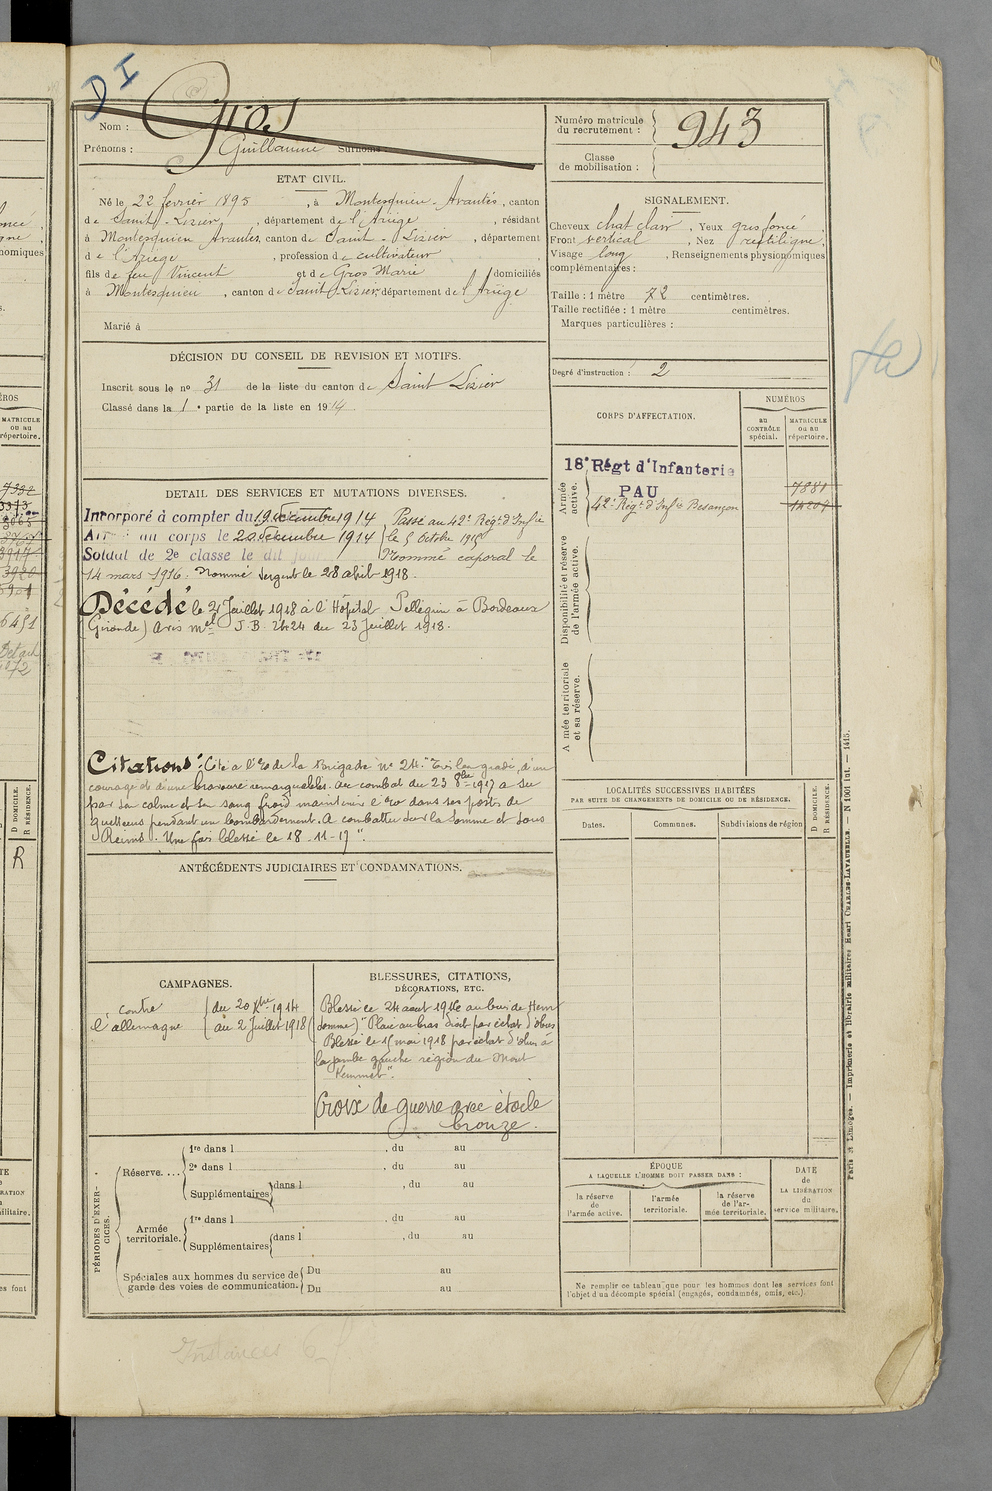 D I
Nom : Gros
Prénoms : Guillaume Surnoms :
Numéro matricule du recrutement : 943
Classe de mobilisation :
ETAT CIVIL.
Né le 22 février 1895, à Montesquieu-Avantès, canton
de Saint-Lizier, département de l'Ariège, résidant
à Montesquieu Avantès, canton de Saint-Lizier, département
de l'Ariège, profession de cultivateur
fils de feu Vincent et de Gros Marie domiciliés
à Montesquieu, canton de Saint-Lizier, département de l'Ariège
Marié à
SIGNALEMENT.
Cheveux chat clair, Yeux gris foncé,
Front vertical, Nez rectiligne,
Visage long, Renseignements physionomiques
complémentaires :
Taille : 1 mètre 72 centimètres.
Taille rectifiée : 1 mètre centimètres.
Marques particulières :
Degré d'instruction : 2
DÉCISION DU CONSEIL DE REVISION ET MOTIFS.
Inscrit sous le no 31 de la liste du canton de Saint Lizier
Classé dans la 1e partie de la liste en 1914.
DETAIL DES SERVICES ET MUTATIONS DIVERSES.
Incorporé à compter du 19 décembre 1914 Passé au 42e Régt d'Infie
Arrivé au corps le 20 Décembre 1914 le 5 Octobre 1915
Soldat de 2e classe le dit jour Nommé caporal le
14 mars 1916. Nommé Sergent le 28 abril 1918.
Décédé le 2 Juillet 1918 à l'Hôpital Pellegrin à Bordeaux
(Gironde) Avis mel J.B. 2424 du 23 Juillet 1918.
Citations : Cité à l'ordre de la Brigade no 24. "Très bon gradé, d'un
courage et d'une bravoure remarquables. Au combat du 23 8bre 1917 a su
par son calme et son sang froid maintenir l'ordre dans ses postes de
guetteurs pendant un bombardement. A combattu sur la Somme et sous
Reims. Une fois blessé le 18-11-17".
ANTÉCÉDENTS JUDICIAIRES ET CONDAMNATIONS.
CAMPAGNES.
contre l'allemagne
du 20 Xbre 1914
au 2 Juillet 1918
BLESSURES, CITATIONS,
DÉCORATIONS, ETC.
Blessé le 24 août 1916 au bois de Hem
(Somme) "Plaie au bras droit par éclat d'obus
Blessé le 15 mai 1918 par éclat d'obus à
la jambe gauche région du Mont
Kemmel".
Croix de guerre avec étoile
bronze.
CORPS D'AFFECTATION.
NUMÉROS
au CONTRÔLE spécial.
MATRICULE ou au répertoire.
Armée active.
18e Régt d'Infanterie
PAU 7881
42e Régt d'Infie Besançon 14207
Disponibilité et réserve de l'armée active.
Armée territoriale et sa réserve.
LOCALITÉS SUCCESSIVES HABITÉES
PAR SUITE DE CHANGEMENTS DE DOMICILE OU DE RÉSIDENCE.
Dates. Communes. Subdivisions de région
D DOMICILE. R RÉSIDENCE.
PÉRIODES D'EXERCICES.
Réserve....
1re dans l , du au
2e dans l , du au
Supplémentaires dans l , du au
Armée territoriale.
1re dans l , du au
Supplémentaires dans l , du au
Spéciales aux hommes du service de Du au
garde des voies de communication. Du au
ÉPOQUE
A LAQUELLE L'HOMME DOIT PASSER DANS :
la réserve de l'armée active.
l'armée territoriale.
la réserve de l'armée territoriale.
DATE de LA LIBÉRATION du service militaire.
Ne remplir ce tableau que pour les hommes dont les services font
l'objet d'un décompte spécial (engagés, condamnés, omis, etc.).
Paris et Limoges. — Imprimerie et librairie militaires Henri CHARLES-LAVAUZELLE. — N 1001 int. — 1415.